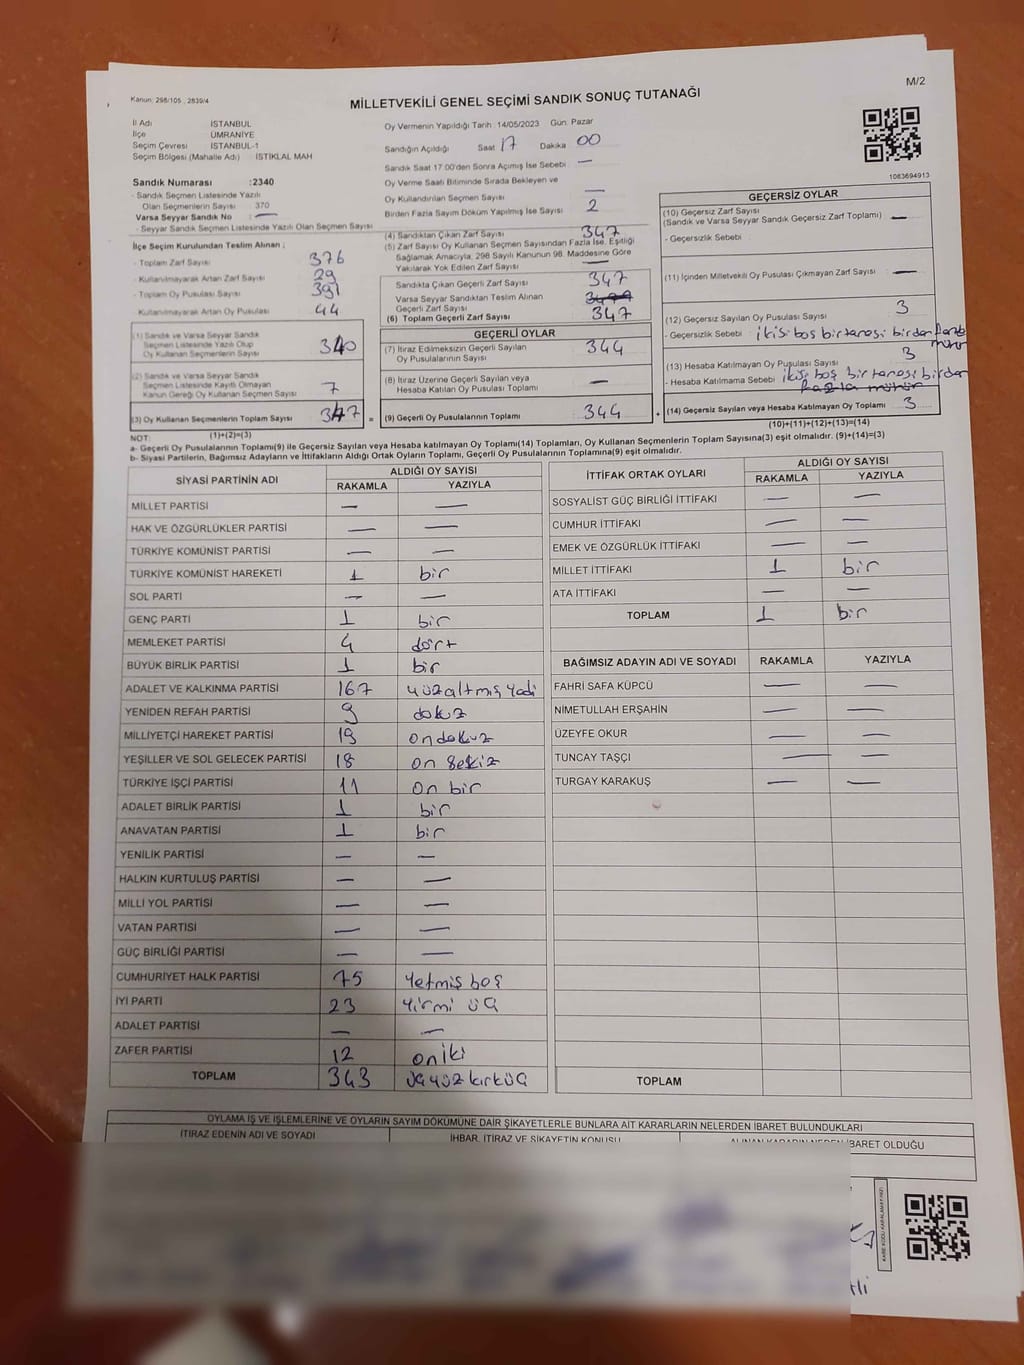 M/2
Kanun: 298/105 , 2839/4
MİLLETVEKİLİ GENEL SEÇİMİ SANDIK SONUÇ TUTANAĞI
İl Adı İSTANBUL
İlçe ÜMRANİYE
Seçim Çevresi İSTANBUL-1
Seçim Bölgesi (Mahalle Adı) İSTİKLAL MAH
Sandık Numarası :2340
- Sandık Seçmen Listesinde Yazılı
Olan Seçmenlerin Sayısı 370
Varsa Seyyar Sandık No —
- Seyyar Sandık Seçmen Listesinde Yazılı Olan Seçmen Sayısı
İlçe Seçim Kurulundan Teslim Alınan ;
- Toplam Zarf Sayısı 376
- Kullanılmayarak Artan Zarf Sayısı 29
- Toplam Oy Pusulası Sayısı 391
- Kullanılmayarak Artan Oy Pusulası 44
(1) Sandık ve Varsa Seyyar Sandık
Seçmen Listesinde Yazılı Olup
Oy Kullanan Seçmenlerin Sayısı 340
(2) Sandık ve Varsa Seyyar Sandık
Seçmen Listesinde Kayıtlı Olmayan
Kanun Gereği Oy Kullanan Seçmen Sayısı 7
(3) Oy Kullanan Seçmenlerin Toplam Sayısı 347 =
(1)+(2)=(3)
Oy Vermenin Yapıldığı Tarih :14/05/2023 Gün: Pazar
Sandığın Açıldığı Saat 17 Dakika 00
Sandık Saat 17:00'den Sonra Açımış İse Sebebi: —
Oy Verme Saati Bitiminde Sırada Bekleyen ve
Oy Kullandırılan Seçmen Sayısı —
Birden Fazla Sayım Döküm Yapılmış İse Sayısı 2
(4) Sandıktan Çıkan Zarf Sayısı 347
(5) Zarf Sayısı Oy Kullanan Seçmen Sayısından Fazla İse, Eşitliği
Sağlamak Amacıyla, 298 Sayılı Kanunun 98. Maddesine Göre
Yakılarak Yok Edilen Zarf Sayısı —
Sandıkta Çıkan Geçerli Zarf Sayısı 347
Varsa Seyyar Sandıktan Teslim Alınan
Geçerli Zarf Sayısı
(6) Toplam Geçerli Zarf Sayısı 347
GEÇERLİ OYLAR
(7) İtiraz Edilmeksizin Geçerli Sayılan
Oy Pusulalarının Sayısı 344
(8) İtiraz Üzerine Geçerli Sayılan veya
Hesaba Katılan Oy Pusulası Toplamı —
(9) Geçerli Oy Pusulalarının Toplamı 344 +
1083694913
GEÇERSİZ OYLAR
(10) Geçersiz Zarf Sayısı
(Sandık ve Varsa Seyyar Sandık Geçersiz Zarf Toplamı) —
- Geçersizlik Sebebi :
(11) İçinden Milletvekili Oy Pusulası Çıkmayan Zarf Sayısı —
(12) Geçersiz Sayılan Oy Pusulası Sayısı 3
- Geçersizlik Sebebi : ikisi boş bir tanesi birden fazla
mühür
(13) Hesaba Katılmayan Oy Pusulası Sayısı 3
- Hesaba Katılmama Sebebi : ikisi boş bir tanesi birden
fazla mühür
(14) Geçersiz Sayılan veya Hesaba Katılmayan Oy Toplamı 3
(10)+(11)+(12)+(13)=(14)
NOT:
a- Geçerli Oy Pusulalarının Toplamı(9) ile Geçersiz Sayılan veya Hesaba katılmayan Oy Toplamı(14) Toplamları, Oy Kullanan Seçmenlerin Toplam Sayısına(3) eşit olmalıdır. (9)+(14)=(3)
b- Siyasi Partilerin, Bağımsız Adayların ve İttifakların Aldığı Ortak Oyların Toplamı, Geçerli Oy Pusulalarının Toplamına(9) eşit olmalıdır.
SİYASİ PARTİNİN ADI ALDIĞI OY SAYISI
RAKAMLA YAZIYLA
MİLLET PARTİSİ — —
HAK VE ÖZGÜRLÜKLER PARTİSİ — —
TÜRKİYE KOMÜNİST PARTİSİ — —
TÜRKİYE KOMÜNİST HAREKETİ 1 bir
SOL PARTİ — —
GENÇ PARTİ 1 bir
MEMLEKET PARTİSİ 4 dört
BÜYÜK BİRLİK PARTİSİ 1 bir
ADALET VE KALKINMA PARTİSİ 167 yüzaltmış yedi
YENİDEN REFAH PARTİSİ 9 dokuz
MİLLİYETÇİ HAREKET PARTİSİ 19 ondokuz
YEŞİLLER VE SOL GELECEK PARTİSİ 18 on sekiz
TÜRKİYE İŞÇİ PARTİSİ 11 on bir
ADALET BİRLİK PARTİSİ 1 bir
ANAVATAN PARTİSİ 1 bir
YENİLİK PARTİSİ — —
HALKIN KURTULUŞ PARTİSİ — —
MİLLİ YOL PARTİSİ — —
VATAN PARTİSİ — —
GÜÇ BİRLİĞİ PARTİSİ — —
CUMHURİYET HALK PARTİSİ 75 yetmiş beş
İYİ PARTİ 23 yirmi üç
ADALET PARTİSİ — —
ZAFER PARTİSİ 12 oniki
TOPLAM 343 üçyüz kırküç
İTTİFAK ORTAK OYLARI ALDIĞI OY SAYISI
RAKAMLA YAZIYLA
SOSYALİST GÜÇ BİRLİĞİ İTTİFAKI — —
CUMHUR İTTİFAKI — —
EMEK VE ÖZGÜRLÜK İTTİFAKI — —
MİLLET İTTİFAKI 1 bir
ATA İTTİFAKI — —
TOPLAM 1 bir
BAĞIMSIZ ADAYIN ADI VE SOYADI RAKAMLA YAZIYLA
FAHRİ SAFA KÜPCÜ — —
NİMETULLAH ERŞAHİN — —
ÜZEYFE OKUR — —
TUNCAY TAŞÇI — —
TURGAY KARAKUŞ — —
TOPLAM
OYLAMA İŞ VE İŞLEMLERİNE VE OYLARIN SAYIM DÖKÜMÜNE DAİR ŞİKAYETLERLE BUNLARA AİT KARARLARIN NELERDEN İBARET BULUNDUKLARI
İTİRAZ EDENİN ADI VE SOYADI İHBAR, İTİRAZ VE ŞİKAYETİN KONUSU ALINAN KARARIN NEDEN İBARET OLDUĞU
KARE KODU KARALAMAYINIZ!